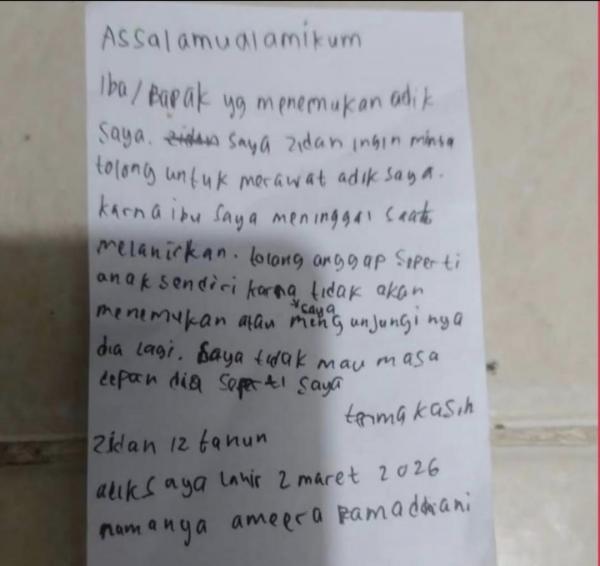 Assalamualamikum
Iba/Bapak yg menemukan adik
saya. zidan saya zidan ingin minta
tolong untuk merawat adik saya.
karna ibu saya meninggal saat
melahirkan. tolong anggap seperti
anak sendiri karna tidak akan
*saya
menemukan atau mengunjungi nya
dia lagi. saya tidak mau masa
depan dia seperti saya
terima kasih
Zidan 12 tahun
adik saya lahir 2 maret 2026
namanya ameera Ramadhani